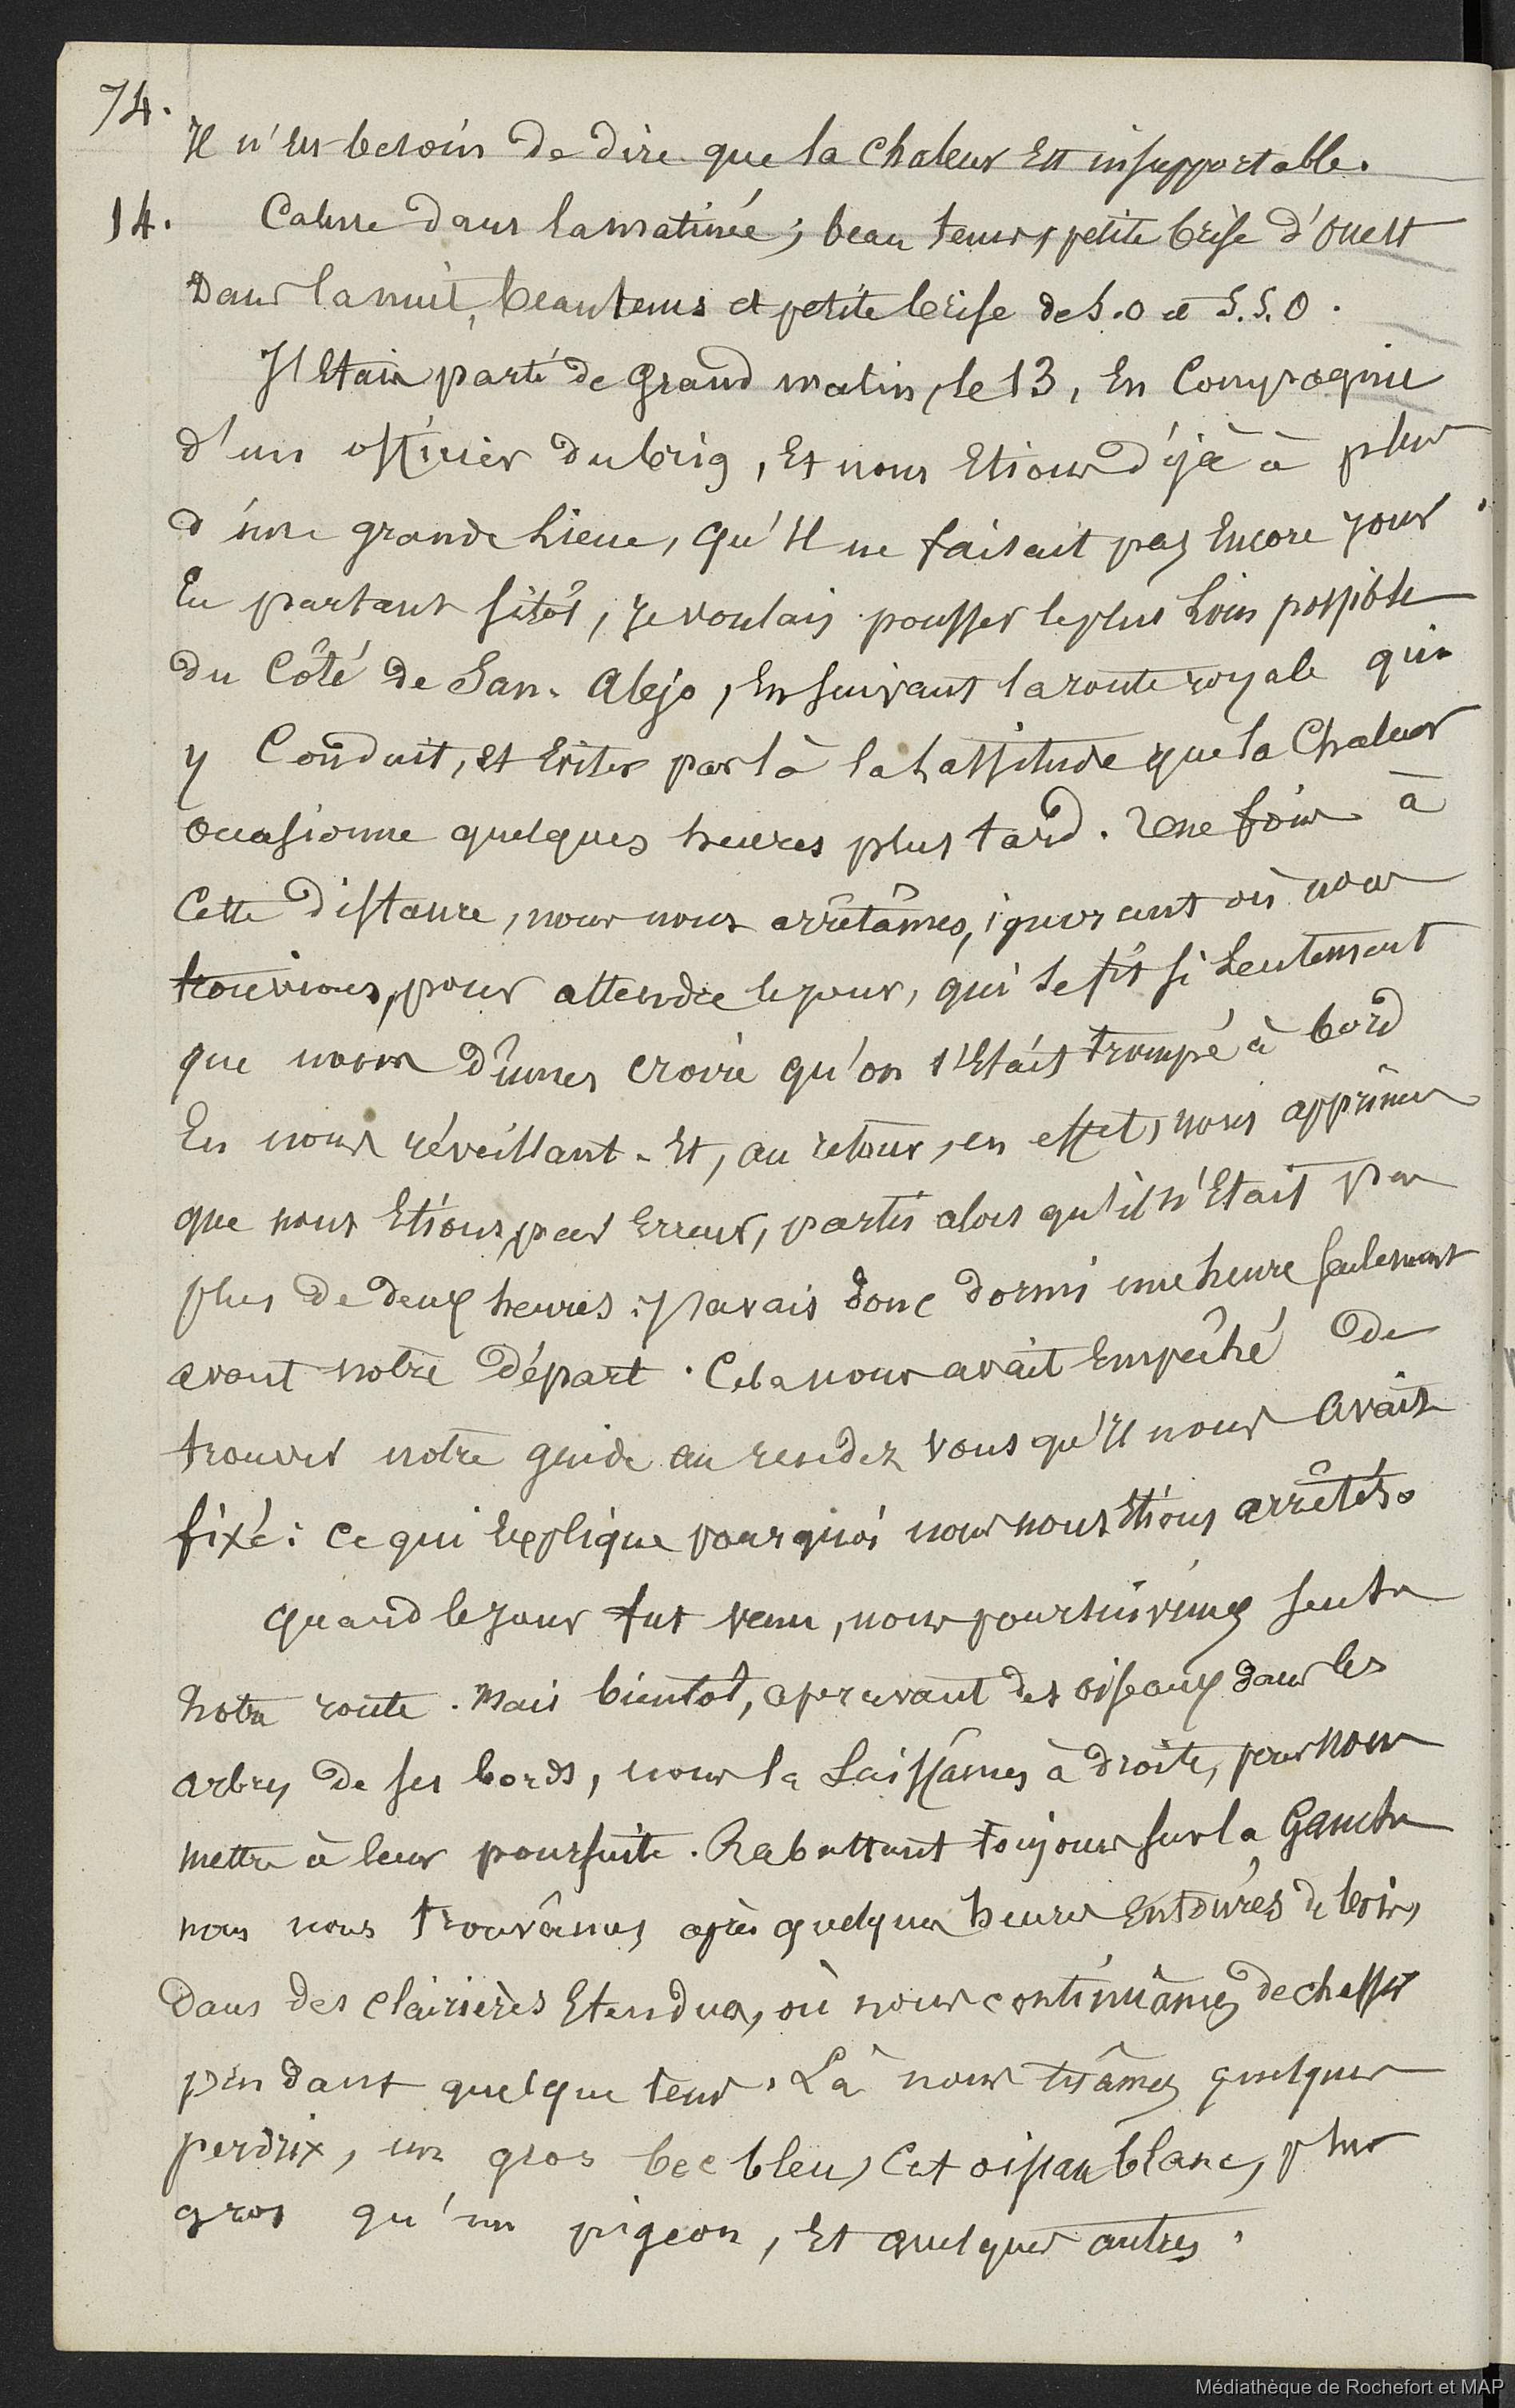 74.
Il n'est besoin de dire que la chaleur est insupportable.
14. Calme dans la matinée; beau tems, petite brise d'ouest
Dans la nuit, beau tems et petite brise de S.O à S.S.O.
J'Etais parti de grand matin, le 13, En Compagnie
d'un officier du brig, Et nous Etions déjà à plus
d'une grande Lieue, qu'Il ne faisait pas Encore jour.
En partant sitôt, je voulais pousser le plus Loin possible
du Côté de San-Alejo, En suivant la route royale qui
y Conduit, et Eviter par là la Lassitude que la Chaleur
occasionne quelques heures plus tard. Une fois à
Cette distance, nous nous arrêtâmes, ignorant où nous
trouvions, pour attendre le jour, qui se fit si Lentement
que nous dûmes croire qu'on s'Etait trompé à bord
En nous réveillant. Et, au retour, en effet, nous apprîmes
que nous Etions, par Erreur, partis alors qu'il n'Etait pas
plus de deux heures. J'avais donc dormi une heure seulement
avant notre départ. Cela nous avait Empêché de
trouver notre guide au rendez vous qu'Il nous avait
fixé: Ce qui Explique pourquoi nous nous Etions arrêtés.
Quand le jour fut venu, nous poursuivîmes seuls
Notre route. Mais bientot, apercevant des oiseaux dans les
arbres de ses bords, nous la Laissâmes à droite, pour nous
mettre à leur poursuite. Rabattant toujours sur la Gauche
nous nous trouvâmes après quelques heures Entourés de bois,
Dans des clairières Etendues, où nous continuâmes de chasser
pendant quelque tems. Là nous tuâmes quelques
perdrix, un gros bec bleu, Cet oiseau blanc, plus
gros qu'un pigeon, Et quelques autres.
Médiathèque de Rochefort et MAP